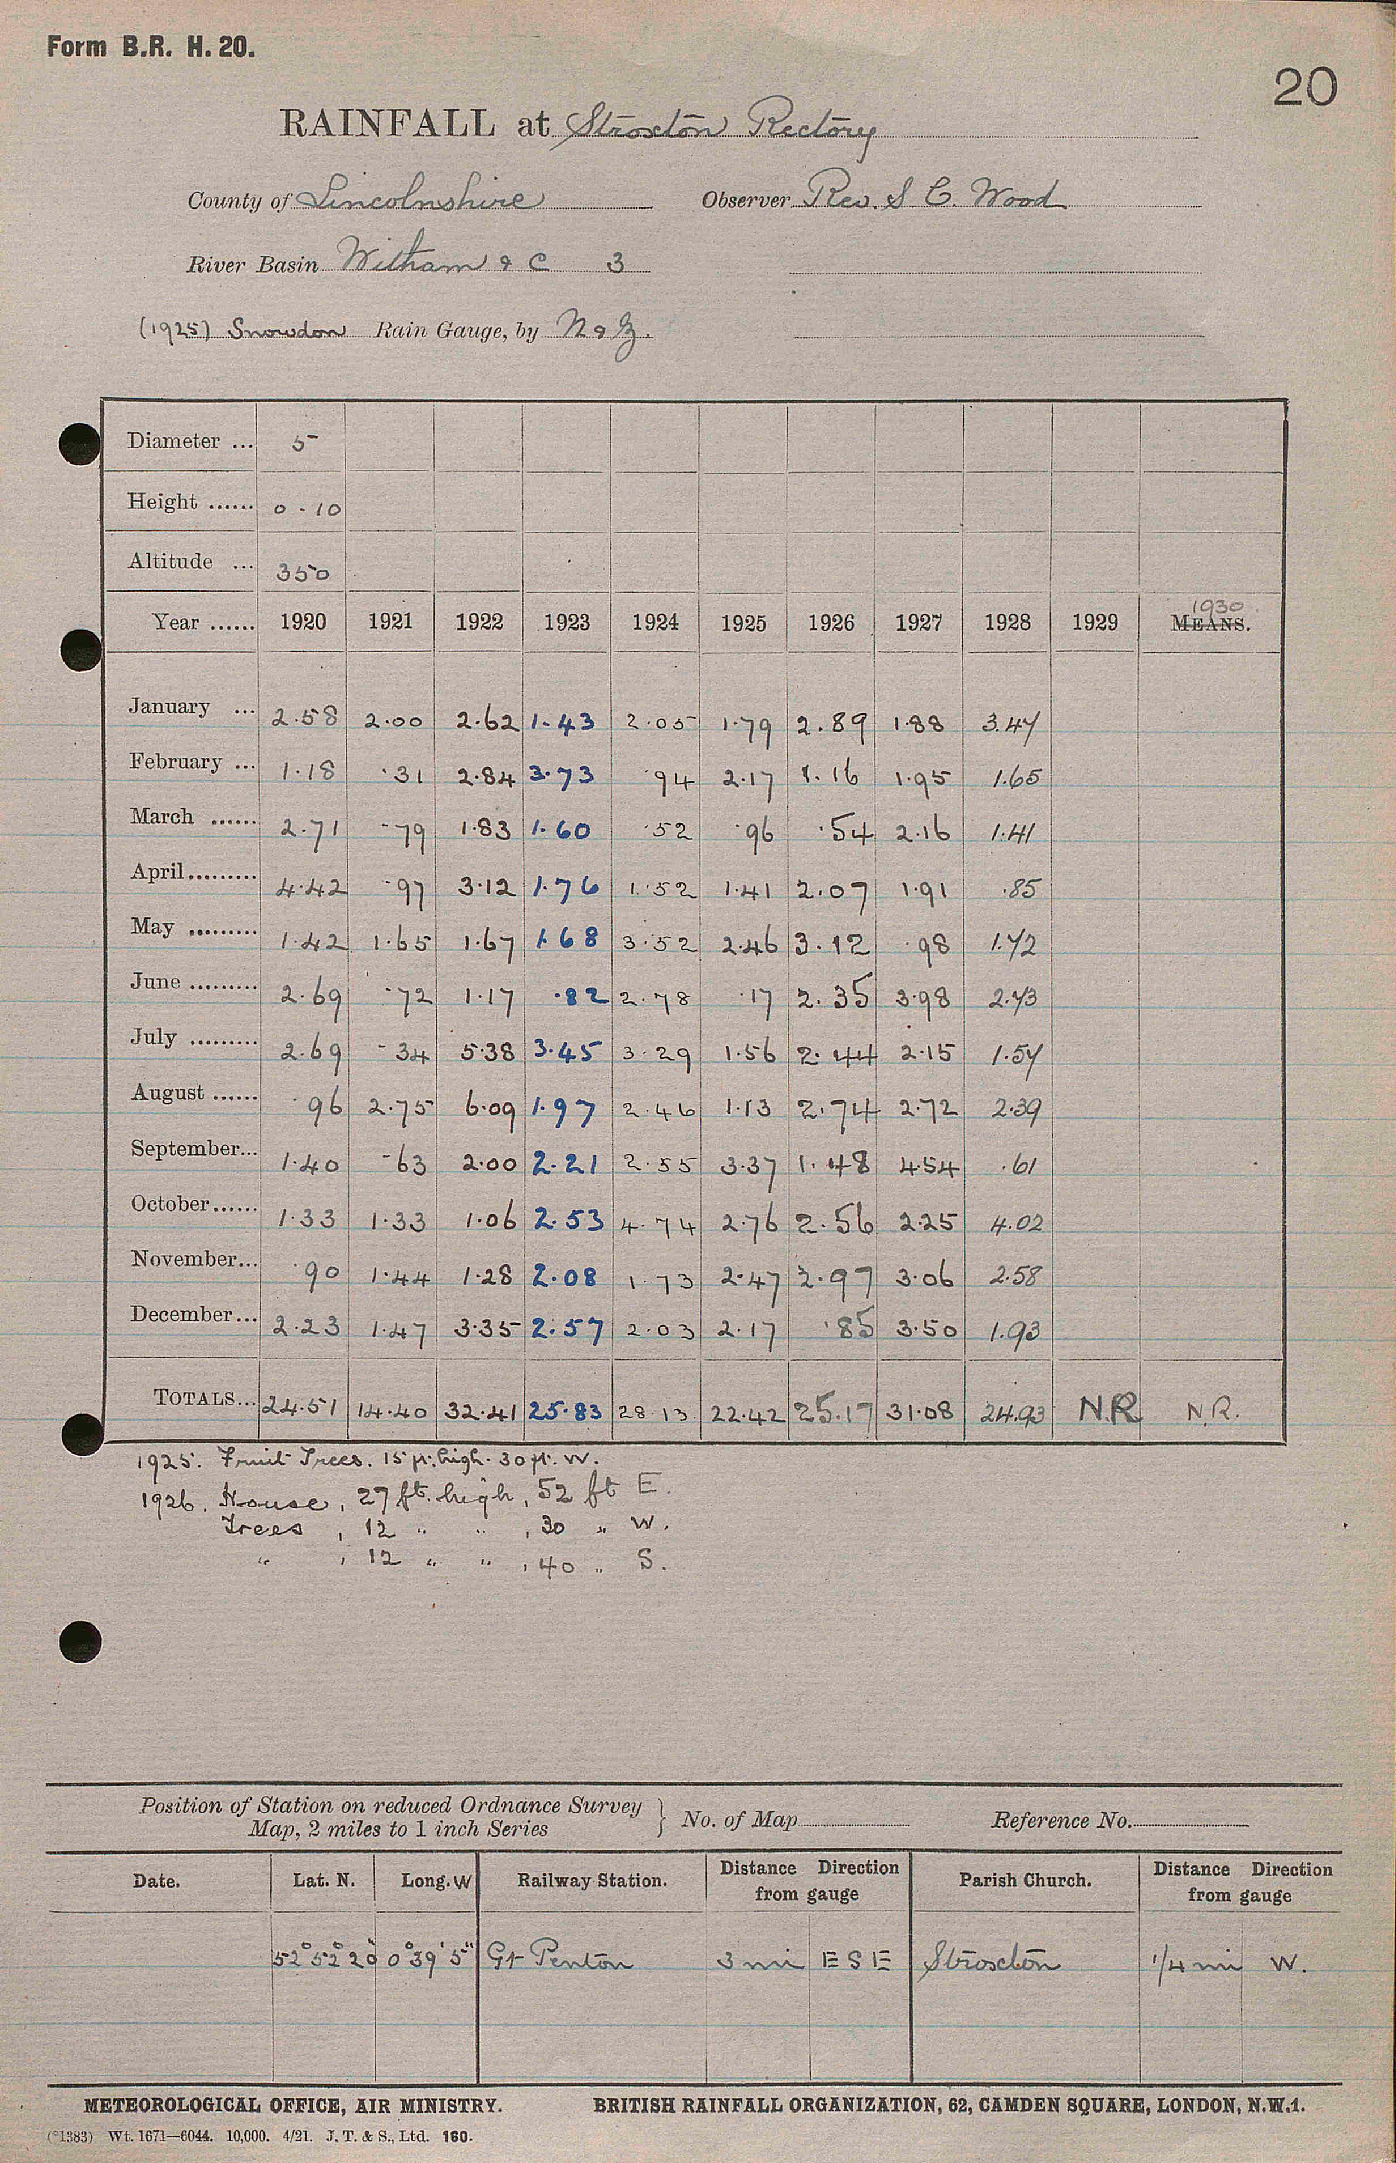 Form B.R. H. 20.
20
RAINFALL at Stroxton Rectory
County of Lincolnshire Observer Rev. S C. Wood
River Basin Witham & C 3
(1925) Snowdon Rain Gauge, by N & Z.
Diameter ... 5
Height ...... 0 - 10
Altitude ... 350
1930
Year ...... 1920 1921 1922 1923 1924 1925 1926 1927 1928 1929 MEANS.
January ... 2.58 2.00 2.62 1.43 2.05 1.79 2.89 1.88 3.47
February ... 1.18 .31 2.84 3.73 .94 2.17 1.16 1.95 1.65
March ...... 2.71 .79 1.83 1.60 .52 .96 .54 2.16 1.41
April......... 4.42 .97 3.12 1.76 1.52 1.41 2.07 1.91 .85
May ......... 1.42 1.65 1.67 1.68 3.52 2.46 3.12 .98 1.72
June ......... 2.69 .72 1.17 .82 2.78 .17 2.35 3.98 2.73
July ......... 2.69 .34 5.38 3.45 3.29 1.56 2.44 2.15 1.57
August ...... .96 2.75 6.09 1.97 2.46 1.13 2.74 2.72 2.39
September... 1.40 .63 2.00 2.21 2.55 3.37 1.48 4.54 .61
October...... 1.33 1.33 1.06 2.53 4.74 2.76 2.56 2.25 4.02
November... .90 1.44 1.28 2.08 1.73 2.47 2.97 3.06 2.58
December... 2.23 1.47 3.35 2.57 2.03 2.17 .85 3.50 1.93
TOTALS... 24.51 14.40 32.41 25.83 28.13 22.42 25.17 31.08 24.93 N.R N.R.
1925. Fruit Trees. 15 ft. high. 30 ft. W.
1926. House, 27 ft. high, 52 ft E.
Trees , 12 " " , 30 " W.
" , 12 " " , 40 " S.
Position of Station on reduced Ordnance Survey
Map, 2 miles to 1 inch Series } No. of Map Reference No.
Date. Lat. N. Long. W Railway Station. Distance Direction from gauge Parish Church. Distance Direction from gauge
52° 52° 20" 0° 39' 5" Gt Ponton 3 mi E S E Stroxton 1/4 mi W.
METEOROLOGICAL OFFICE, AIR MINISTRY. BRITISH RAINFALL ORGANIZATION, 62, CAMDEN SQUARE, LONDON, N.W.1.
(*1383) Wt. 1671—6044. 10,000. 4/21. J. T. & S., Ltd. 160.